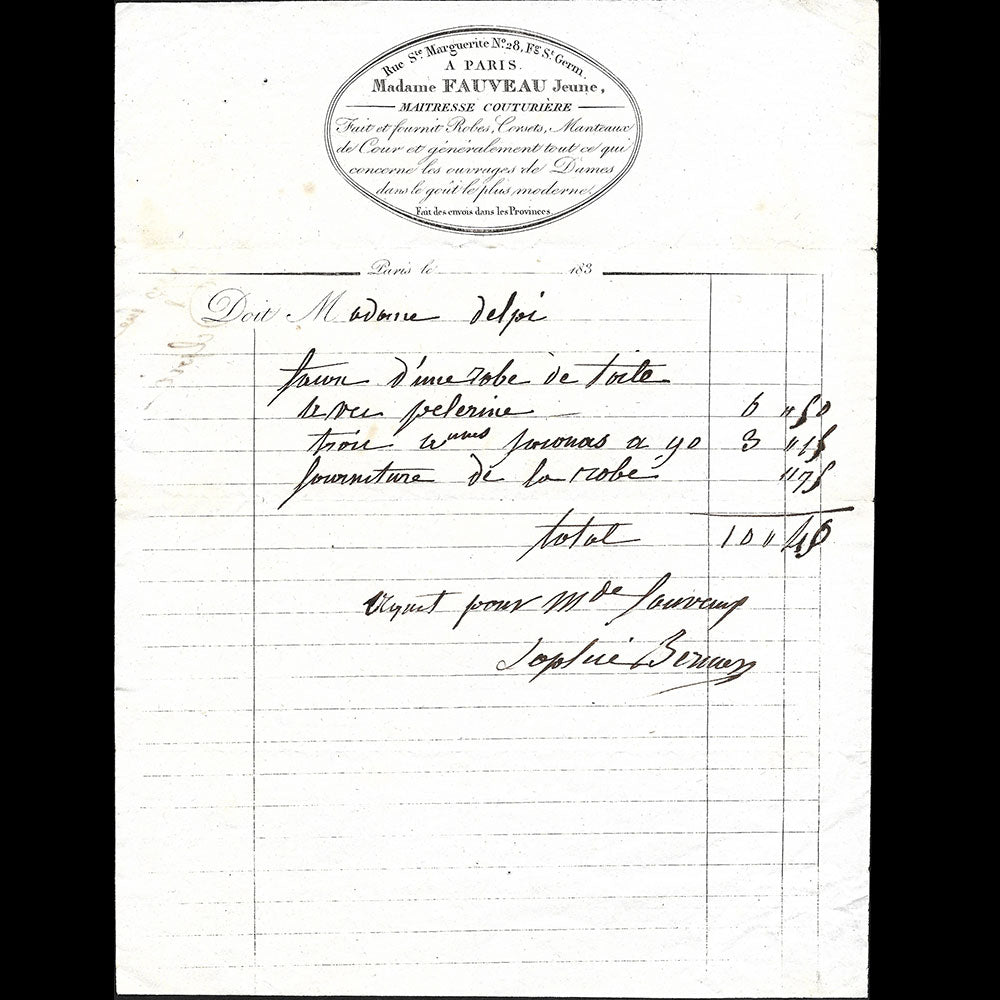 Rue Ste Marguerite No. 28, Fg St Germ.
A PARIS.
Madame FAUVEAU Jeune,
MAITRESSE COUTURIÈRE
Fait et fournit Robes, Corsets, Manteaux
de Cour et généralement tout ce qui
concerne les ouvrages de Dames
dans le goût le plus moderne.
Fait des envois dans les Provinces.
Paris le 183
Doit Madame delpi
d'une robe de toile
pelerine 6 " 50
trois a 90 3 " 15
fourniture de la robe " 75
total 10 " 40
pour Mde fauveau
Sophie